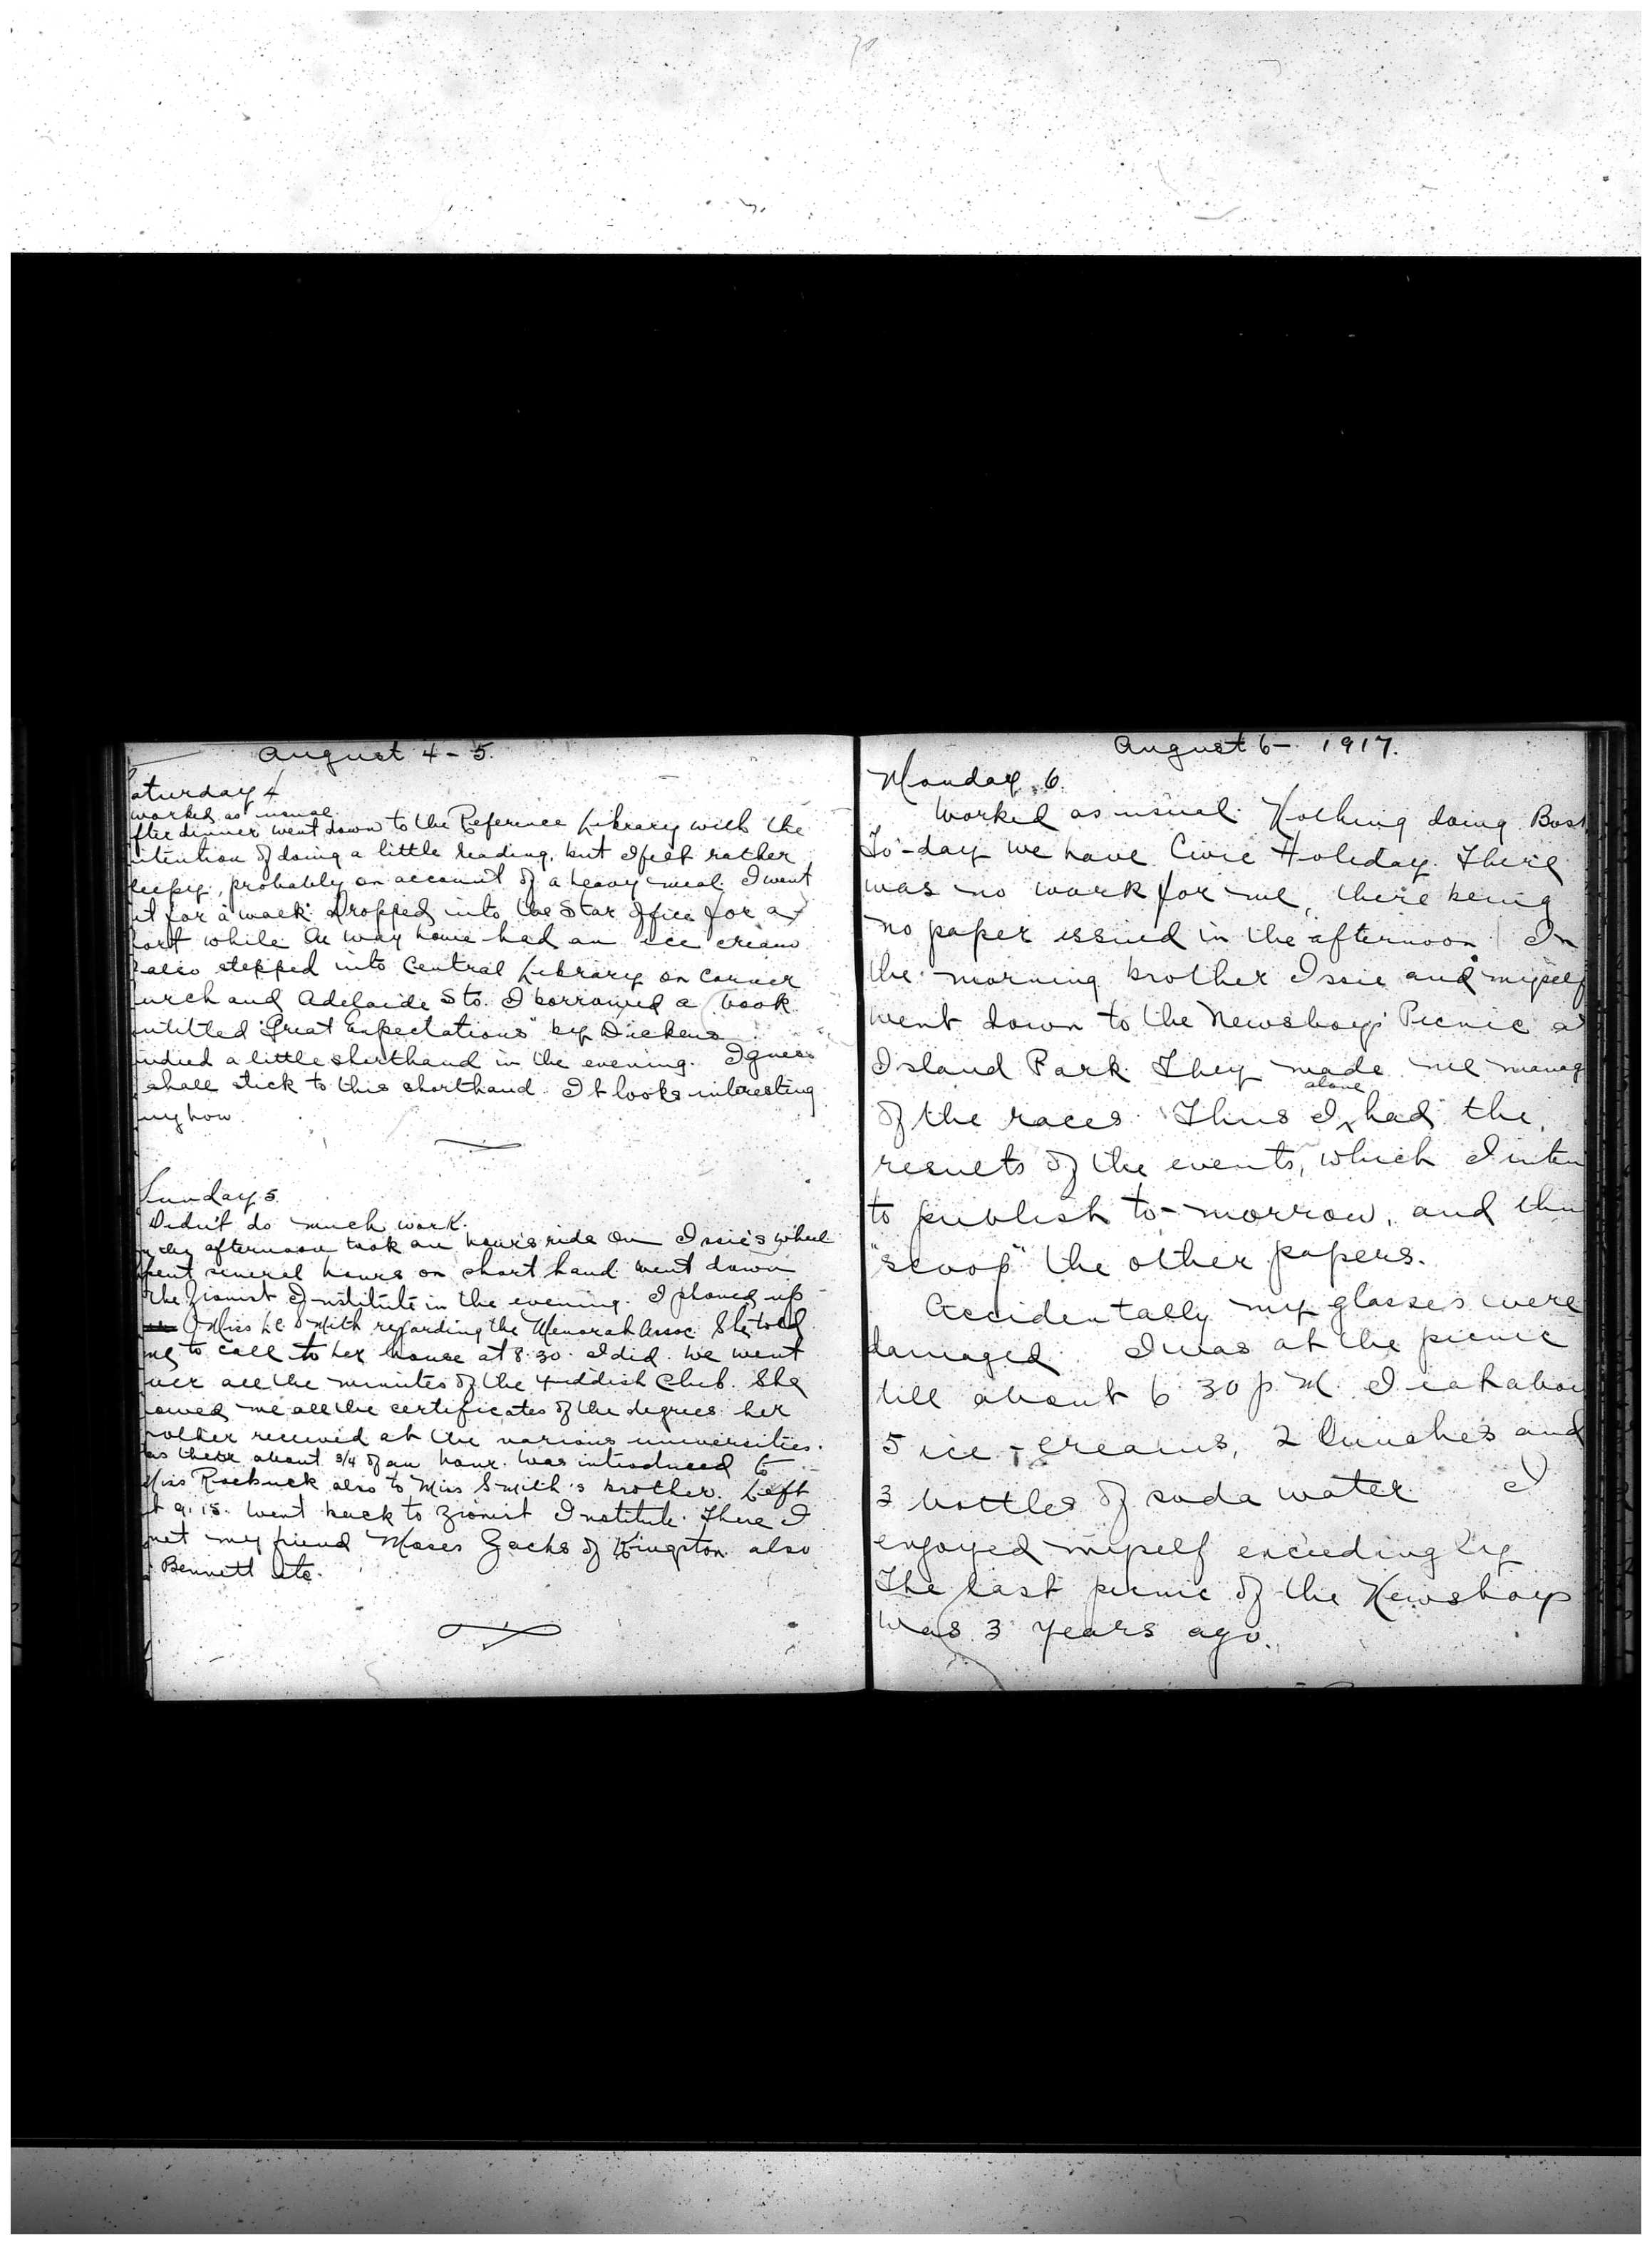 August 4-5.
aturday 4
worked as usual
fter dinner went down to the Reference Library with the
ntention of doing a little reading, but I felt rather
leepy, probably on account of a heavy meal. I went
ut for a walk. Dropped into the Star Office for a
ort while. On way home had an ice cream
also stepped into Central Library on corner
urch and Adelaide Sts. I borrowed a book
ntitled "Great Expectations" by Dickens
udied a little shorthand in the evening. I guess
shall stick to this shorthand. It looks interesting
nyhow
Sunday 5.
Didn't do much work.
afternoon took an hour's ride on Issie's wheel
pent several hours on short hand went down
the Zionist Institute in the evening. I phoned up
Miss Smith regarding the Menorah Assoc. She told
me to call to her house at 8.30. I did. We went
ver all the minutes of the Yiddish Club. She
howed me all the certificates of the degrees her
rother received at the various universities.
as there about 3/4 of an hour. Was introduced to
Miss Roebuck also to Miss Smith's brother. Left
t 9.15. Went back to Zionist Institute. There I
met my friend Moses Zacks of Kingston also
Bennett etc.
August 6- 1917.
Monday 6.
Worked as usual. Nothing doing Bost
To-day we have Civic Holiday. There
was no work for me, there being
no paper issued in the afternoon. In
the morning brother Issie and myself
went down to the Newsboys' Picnic at
Island Park. They made me manag
of the races. Thus I alone had the
results of the events, which I inten
to publish to-morrow, and thu
"scoop" the other papers.
Accidentally my glasses were
damaged. I was at the picnic
till about 6.30 p.m. I eat abou
5 ice-creams, 2 lunches and
3 bottles of soda water I
enjoyed myself exceedingly
The last picnic of the Newsboys
was 3 years ago.